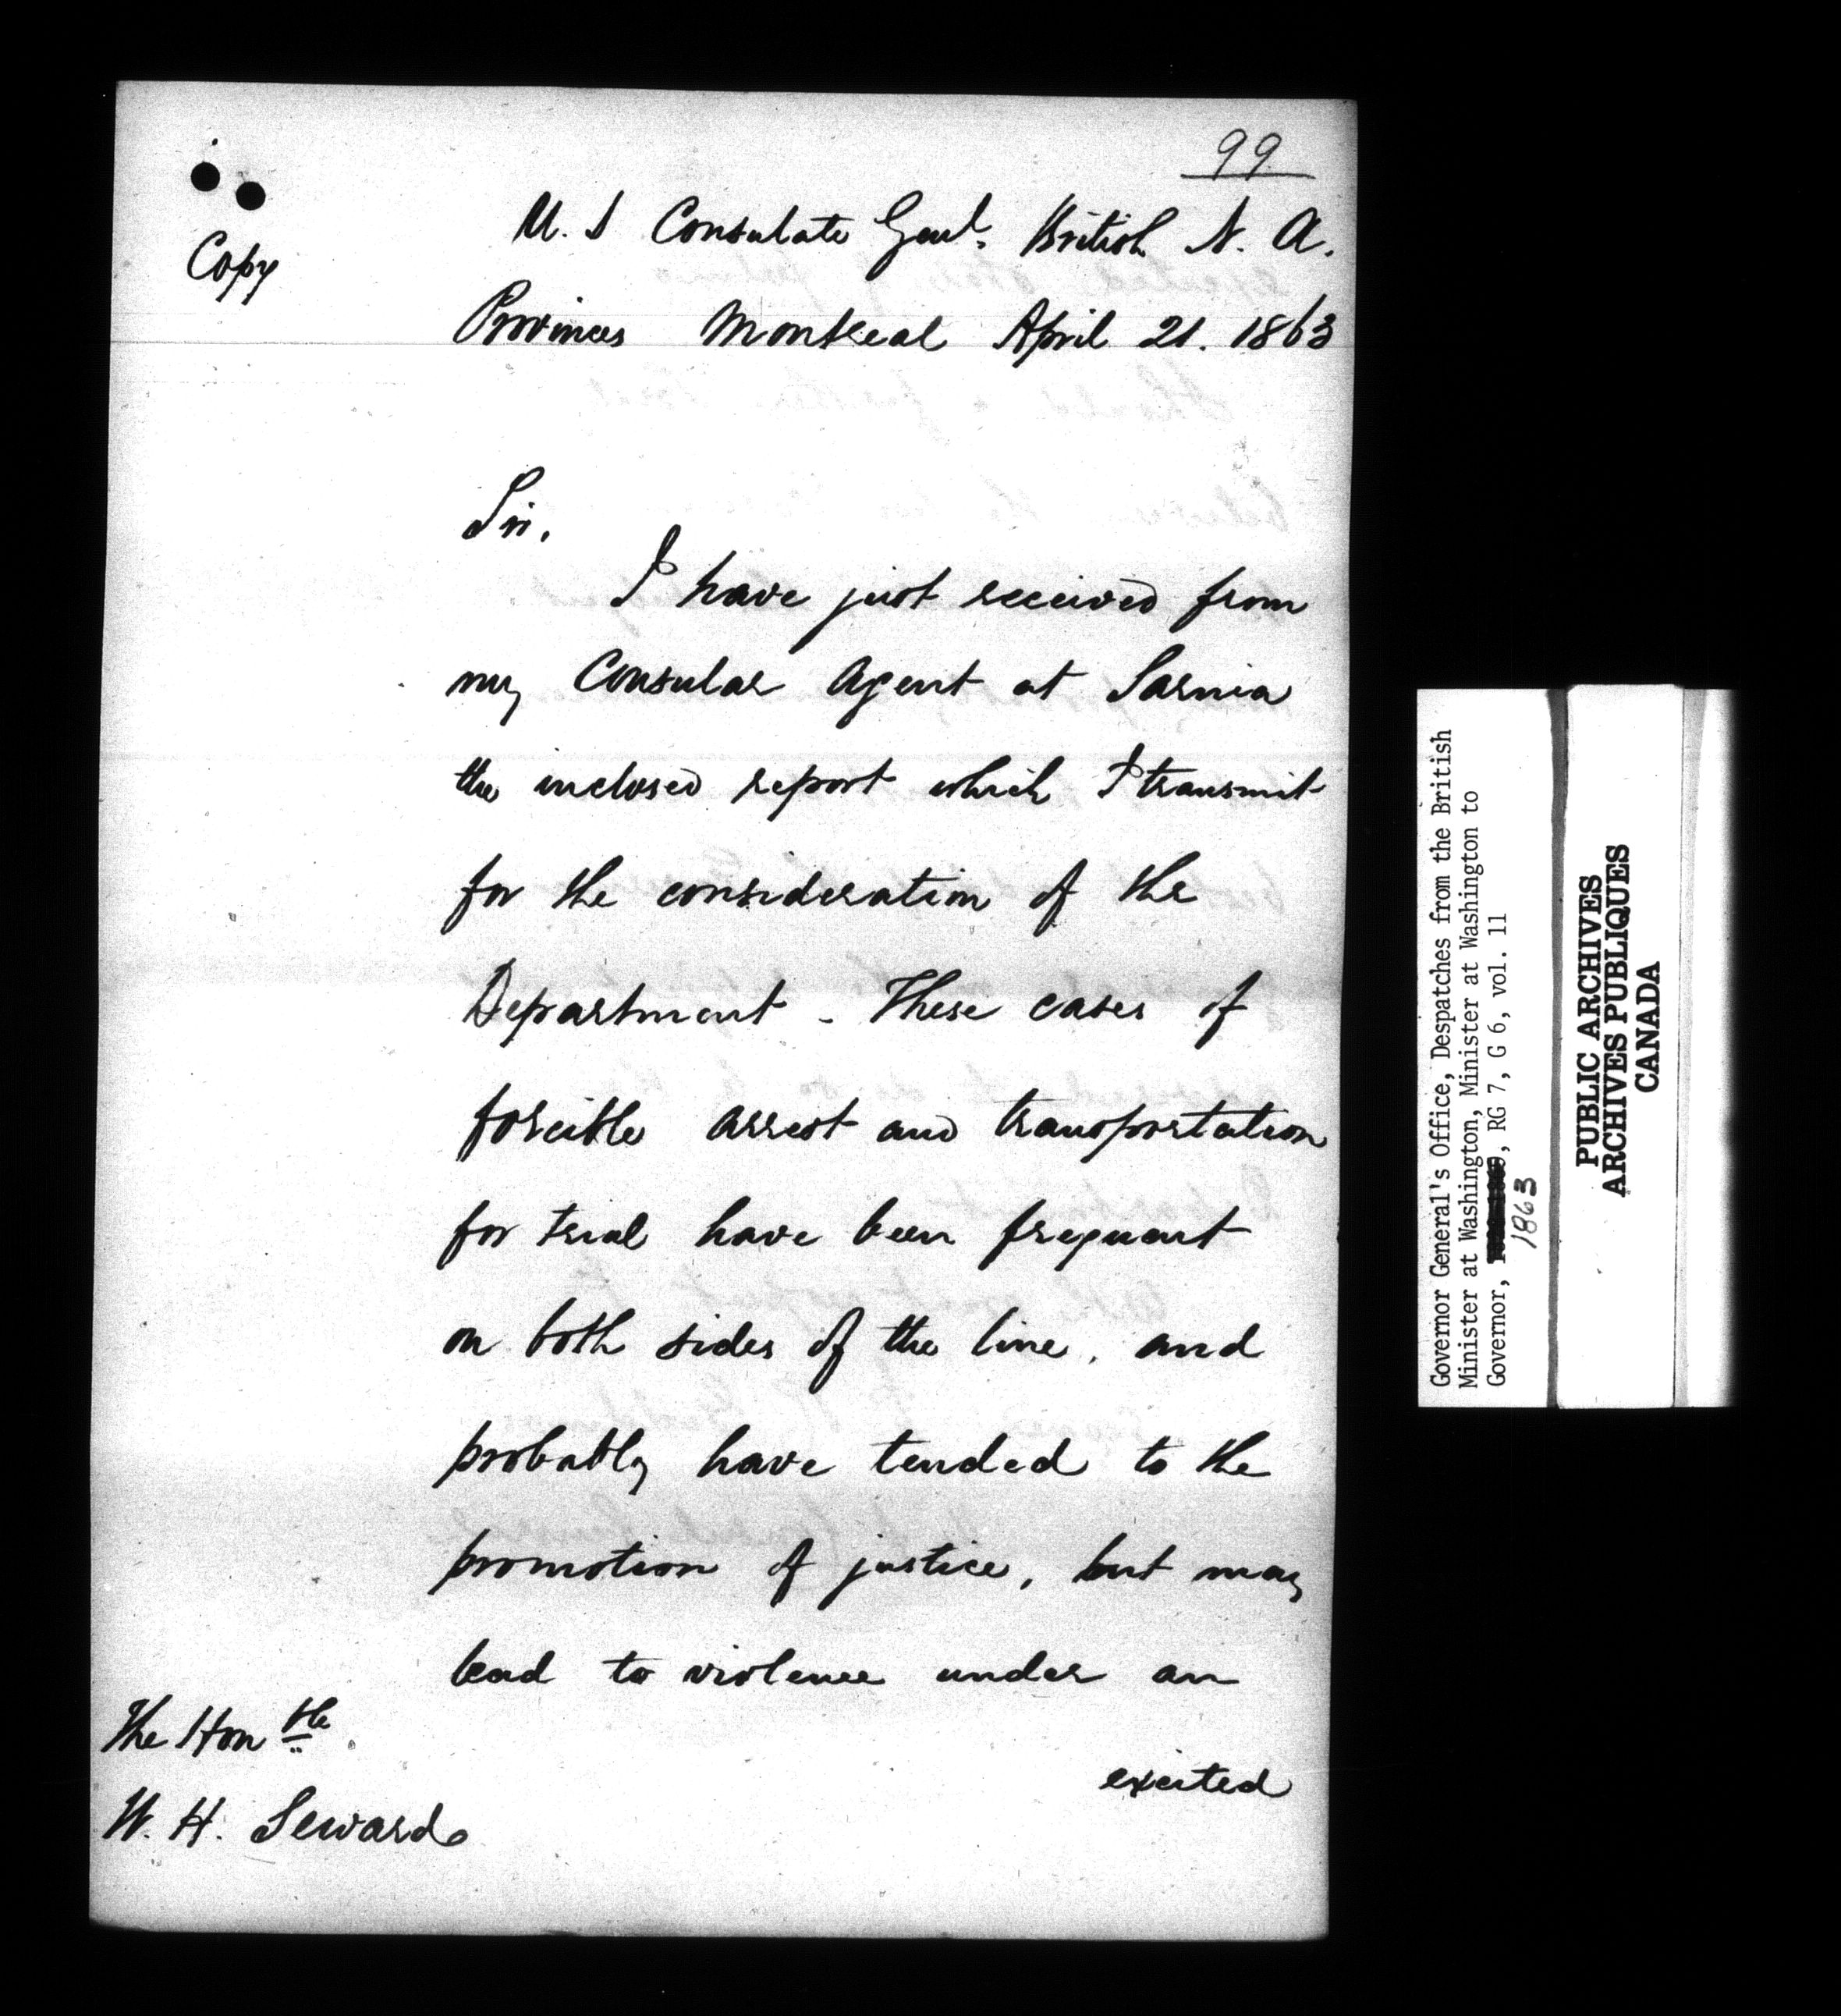 99
Copy
U. S Consulate Genl. British N. A.
Provinces Montreal April 21. 1863
Sir,
I have just received from
my Consular Agent at Sarnia
the inclosed report which I transmit
for the consideration of the
Department - These cases of
forcible arrest and transportation
for trial have been frequent
on both sides of the line, and
probably have tended to the
promotion of justice, but may
lead to violence under an
excited
The Honble
W. H. Seward
Governor General's Office, Despatches from the British
Minister at Washington, Minister at Washington to
Governor, , RG 7, G 6, vol. 11
1863
PUBLIC ARCHIVES
ARCHIVES PUBLIQUES
CANADA